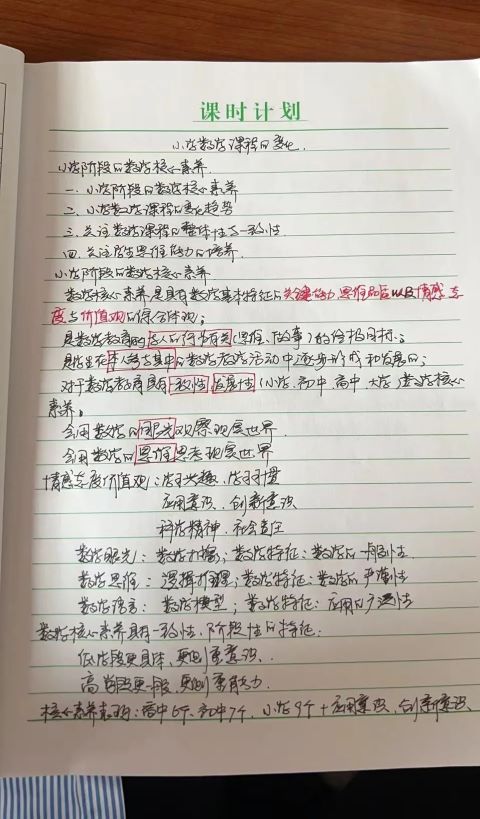 课时计划
小学数学课程的变化.
小学阶段的数学核心素养.
一. 小学阶段的数学核心素养
二. 小学数学课程的变化趋势
三. 关注数学课程的整体性与一致性
四. 关注学生思维能力的培养.
小学阶段的数学核心素养.
数学核心素养是具有数学基本特征的关键能力 思维品质以及情感态
度与价值观的综合体现;
是数学教育的与人的行为有关(思维、做事)的终极目标.;
是学生在本人参与其中的数学教学活动中逐步形成和发展的;
对于数学教育具有一致性 发展性(小学、初中、高中、大学)数学核心
素养。
会用数学的眼光观察现实世界.
会用数学的思维思考现实世界
情感态度价值观:学习兴趣、学习习惯
应用意识、创新意识
科学精神、社会责任
数学眼光:数学抽象;数学特征:数学的一般性
数学思维:逻辑推理;数学特征:数学的严谨性
数学语言:数学模型;数学特征:应用的广泛性
数学核心素养具有一致性、阶段性的特征:
低学段更具体、更侧重意识、
高学段更一般、更侧重能力.
核心素养表现:高中6个、初中7个、小学9个+应用意识、创新意识